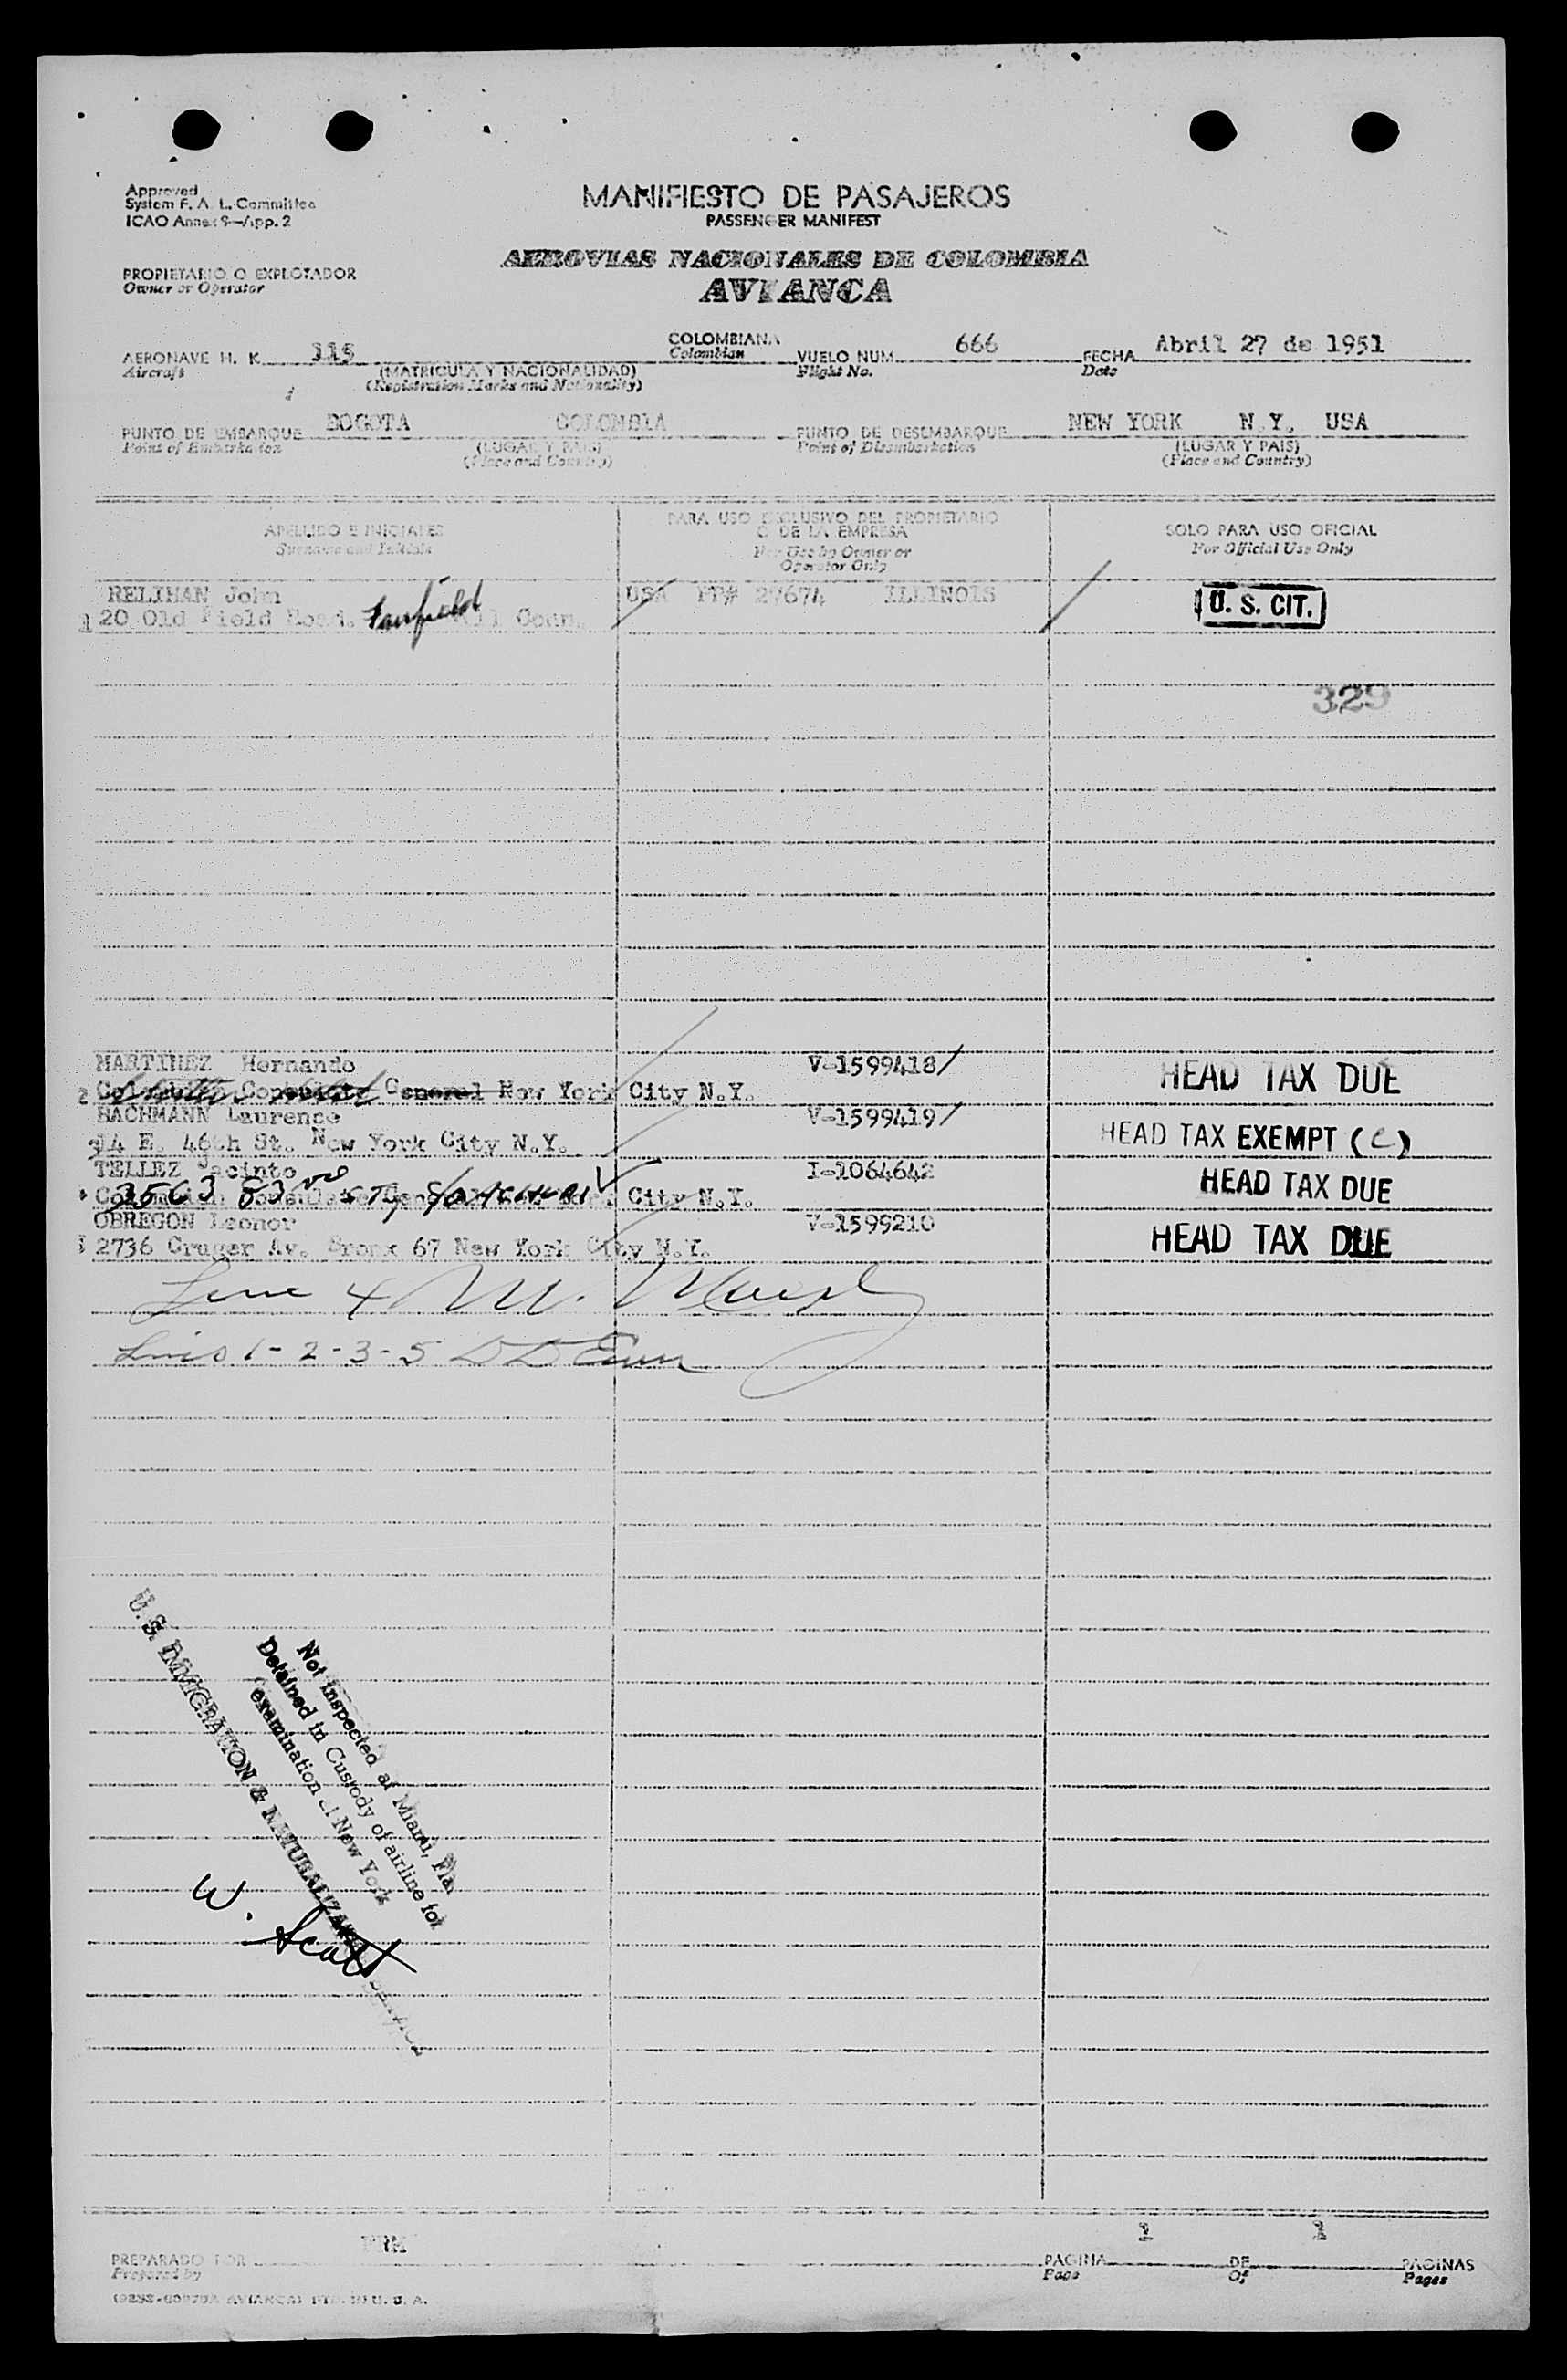 Approved
System F. A. L. Committee
ICAO Annex 9—App. 2
MANIFIESTO DE PASAJEROS
PASSENGER MANIFEST
AEROVIAS NACIONALES DE COLOMBIA
AVIANCA
PROPIETARIO O EXPLOTADOR
Owner or Operator
AERONAVE H. K. 115 COLOMBIANA VUELO NUM. 666 FECHA Abril 27 de 1951
Aircraft (MATRICULA Y NACIONALIDAD) Colombian Flight No. Date
(Registration Marks and Nationality)
PUNTO DE EMBARQUE BOGOTA COLOMBIA PUNTO DE DESEMBARQUE NEW YORK N.Y. USA
Point of Embarkation (LUGAR Y PAIS) Point of Disembarkation (LUGAR Y PAIS)
(Place and Country) (Place and Country)
APELLIDO E INICIALES PARA USO EXCLUSIVO DEL PROPIETARIO SOLO PARA USO OFICIAL
Surname and Initials O DE LA EMPRESA For Official Use Only
For Use by Owner or
Operator Only
RELIHAN John USA PT# 27674 ILLINOIS U. S. CIT.
1 20 Old Field Road. Fairfield Conn.
329
MARTINEZ Hernando V-1599418/ HEAD TAX DUE
2 General New York City N.Y.
BACHMANN Laurence V-1599419/ HEAD TAX EXEMPT (C)
3 14 E. 46th St. New York City N.Y.
TELLEZ Jacinto I-1064642 HEAD TAX DUE
3563 83 City N.Y.
OBREGON Leonor V-1599210 HEAD TAX DUE
2736 Cruger Av. Bronx 67 New York City N.Y.
Line 4 M.
Lines 1-2-3-5
Not inspected at Miami, Fla.
Detained in Custody of airline for
examination at New York
U. S. IMMIGRATION & NATURALIZATION SERVICE
W. Scott
PREPARADO POR
Prepared by
PAGINA 1 DE 1 PAGINAS
Page Of Pages